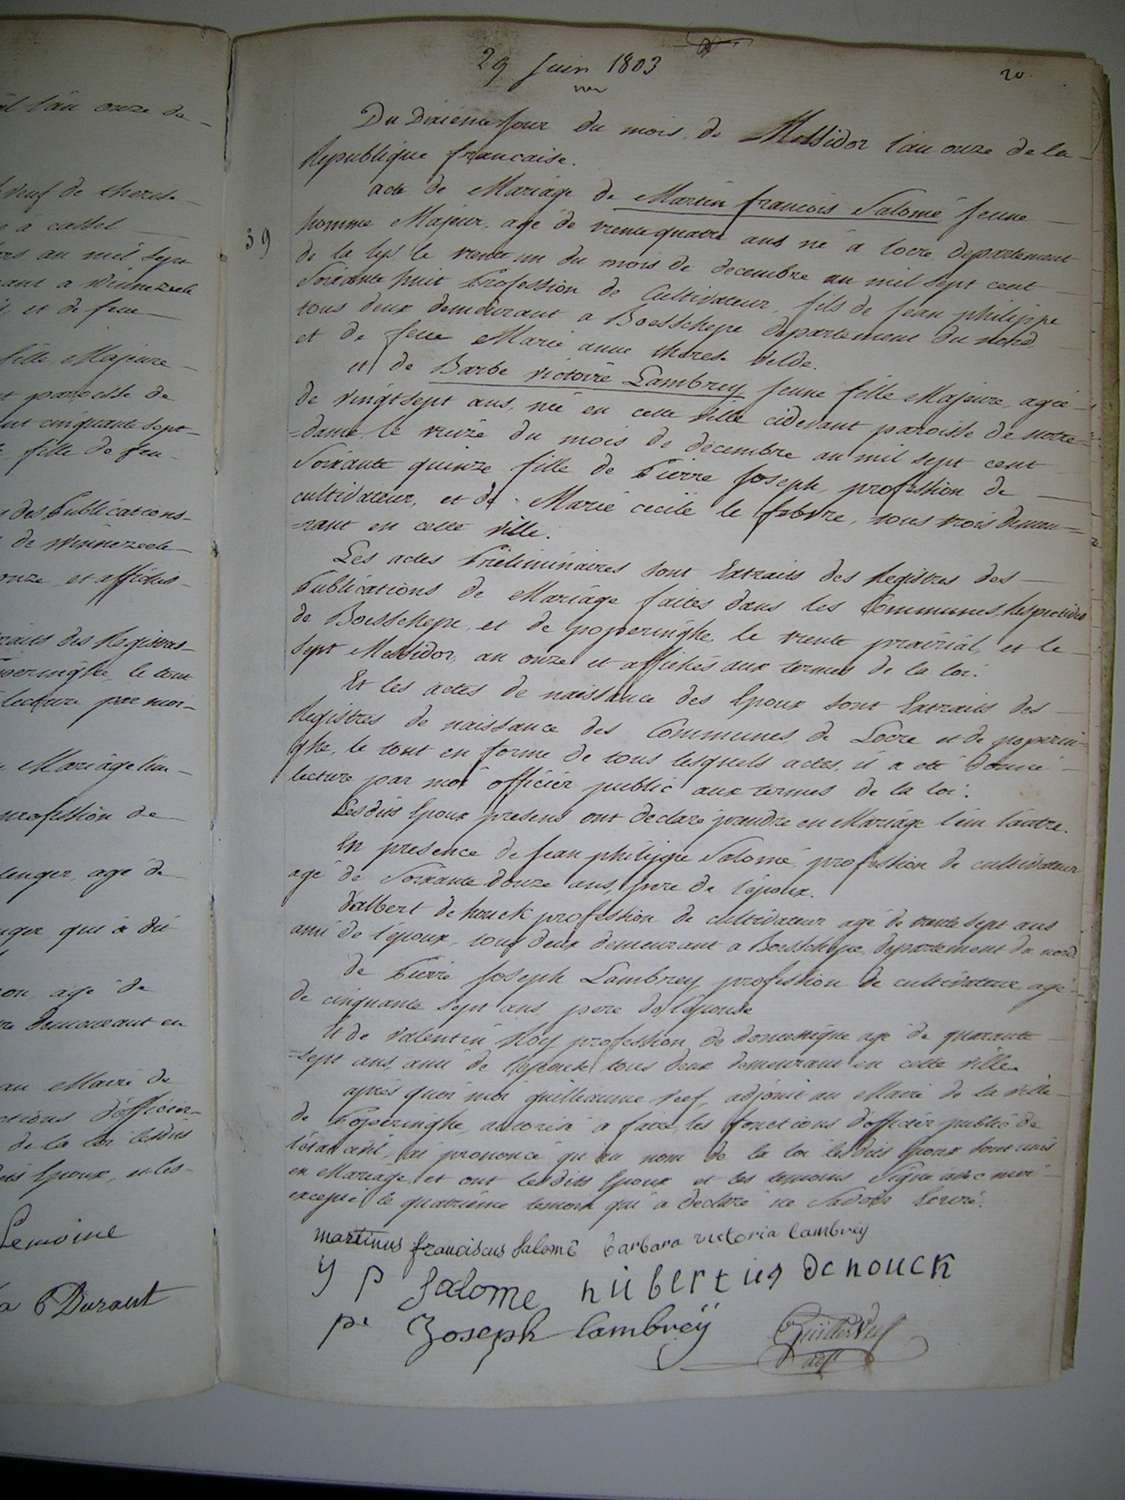 il l'an onze de
29 Juin 1803
20
Du Dixieme Jour du mois de Messidor l'an onze de la
Republique francaise.
acte de Mariage de Martin francois Salomé Jeune
39
homme Majeur, agé de trente quatre ans né à locre departement
de la lys le trente un du mois de decembre an mil sept cent
Soixante huit Profession de Cultivateur, fils de Jean philippe
tous deux demeurant a Boesschepe departement du nord
et de feue Marie anne therese belde.
et de Barbe victoire Lambrey Jeune fille Majeure, agée
de vingt sept ans, née en cette ville cidevant paroisse de notre
=dame, le treize du mois de decembre an mil sept cent
Soixante quinze fille de Pierre Joseph, profession de
cultivateur, et de Marie cecile le febvre, tous trois demeu=
=rant en cette ville.
Les actes Préliminaires sont Extraits des Registres des
Publications de Mariage faites dans les Communes Respectives
de Boesschepe, et de poperinghe, le trente prairial et le
Sept Messidor, an onze et affichés aux termes de la loi.
Et les actes de naissance des Epoux sont Extraits des
Registres de naissance des Communes de Locre et de poperin-
ghe, le tout en forme de tous lesquels actes, il a été donné
lecture par moi officier public aux termes de la loi.
Lesdits Epoux presens ont declaré prendre en Mariage l'un l'autre.
En presence de Jean philippe Salomé, profession de cultivateur
agé de Soixante douze ans, pere de l'époux.
d'albert de houck profession de cultivateur agé de trente sept ans
ami de l'epoux, tous deux demeurant a Boesschepe, departement du nord
de Pierre Joseph Lambrey profession de cultivateur agé
de cinquante sept ans, pere de l'epouse
et de valentin Roy profession de domestique agé de quarante
=sept ans, ami de l'epouse, tous deux demeurant en cette ville.
après quoi moi guilliaume Neef, adjoint au Maire de la ville
de Poperinghe, autorisé a faire les fonctions d'officier public de
l'état civil, ai prononcé qu'au nom de la loi lesdits Epoux sont unis
en Mariage, et ont lesdits Epoux et les temoins Signé avec moi
excepté le quatrième temoin qui a declaré ne Savoir Ecrire.
martinus franciscus salome barbara victoria lambrey
y p Salome hubertus Dehouck
pe Joseph lambreÿ
adjt
neuf de therese
à cassel
an mil sept
à Winnezeele
et de feue
fille Majeure
paroisse de
cinquante sept
fille de feu
des Publications
de Winnezeele
onze, et affichés
des Registres
le tout
lecture par moi
Mariage l'un
profession de
agé de
qui a dit
agé de
demeurant en
au Maire de
d'officier
de la loi lesdits
Epoux, et les
Lemoine
Durant